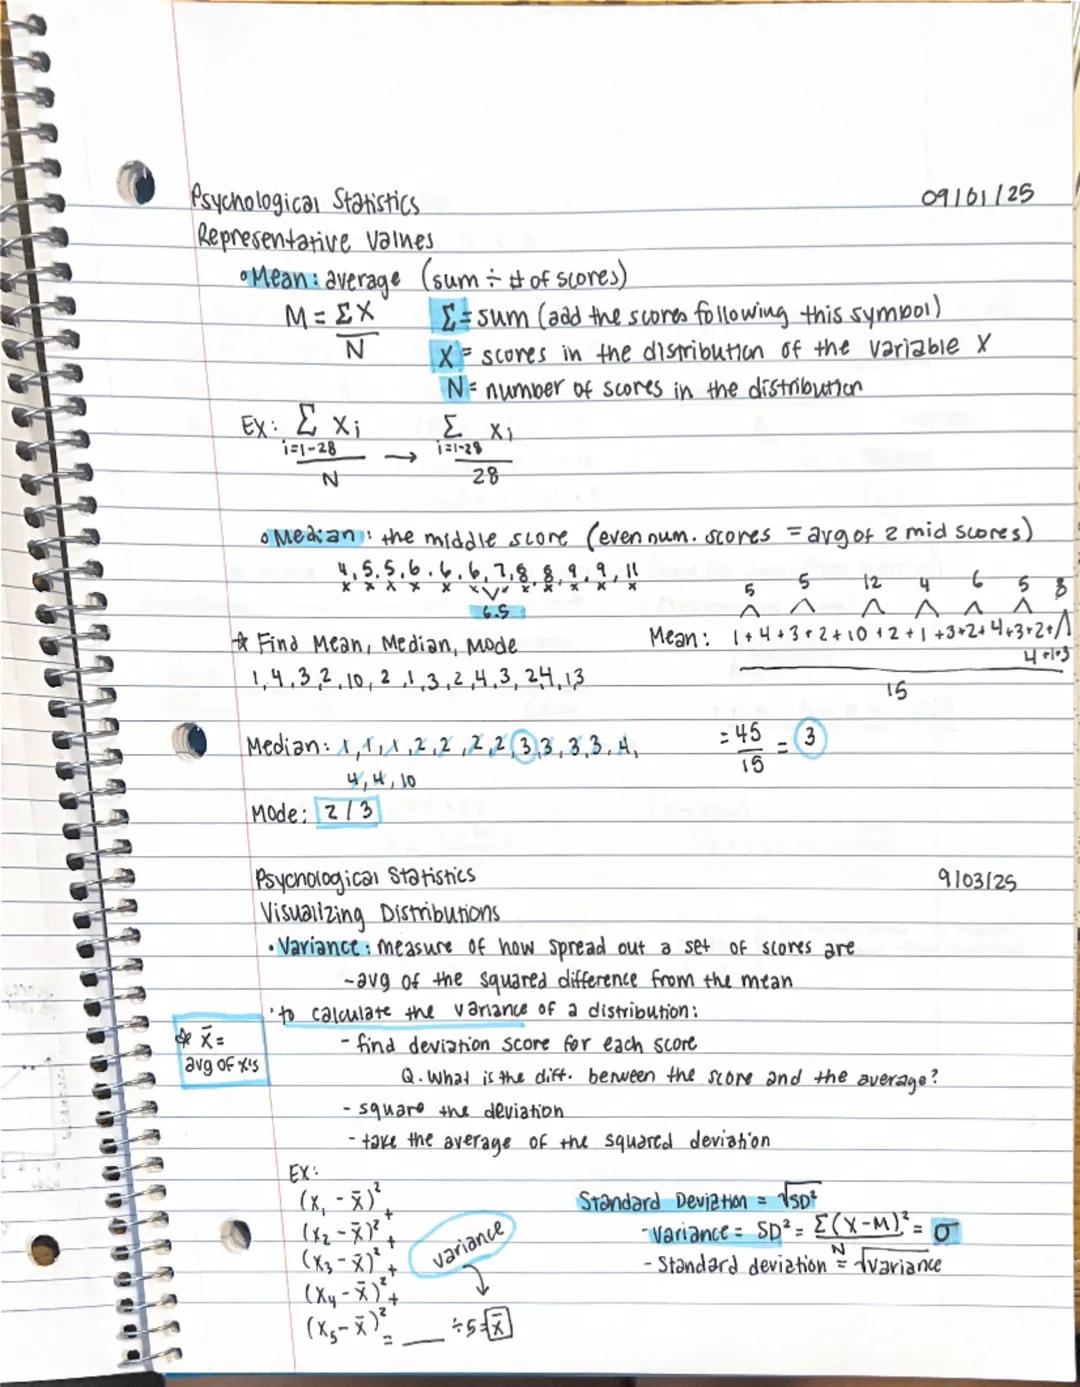 Psychological Statistics 09/01/25
Representative Values
• Mean: average (sum ÷ # of scores)
M = ΣX / N
Σ = sum (add the scores following this symbol)
X = scores in the distribution of the variable X
N = number of scores in the distribution
Ex: Σ Xi → Σ Xi
i=1-28 i=1-28
N 28
• Median: the middle score (even num. scores = avg of 2 mid scores)
4, 5, 5, 6, 6, 6, 7, 8, 8, 9, 9, 11
6.5
5 5 12 4 6 5 8
☆ Find Mean, Median, Mode
Mean: 1+4+3+2+10+2+1+3+2+4+3+2+
4+1+3
15
1, 4, 3, 2, 10, 2, 1, 3, 2, 4, 3, 2 4, 1 3
Median: 1, 1, 1, 2, 2, 2, 2, 3, 3, 3, 3, 4,
4, 4, 10
= 45 / 15 = 3
Mode: 2/3
Psychological Statistics 9/03/25
Visualizing Distributions
• Variance: measure of how spread out a set of scores are
- avg of the squared difference from the mean
• to calculate the variance of a distribution:
☆ x̄ =
avg of x's
- find deviation score for each score
Q. What is the diff. between the score and the average?
- square the deviation
- take the average of the squared deviation
Ex:
(x₁ - x̄)² +
(x₂ - x̄)² +
(x₃ - x̄)² +
(x₄ - x̄)² +
(x₅ - x̄)² = ___ ÷ 5 = x̄
variance
Standard Deviation = √SD²
- Variance = SD² = Σ(X-M)² / N = σ
- Standard deviation = √variance